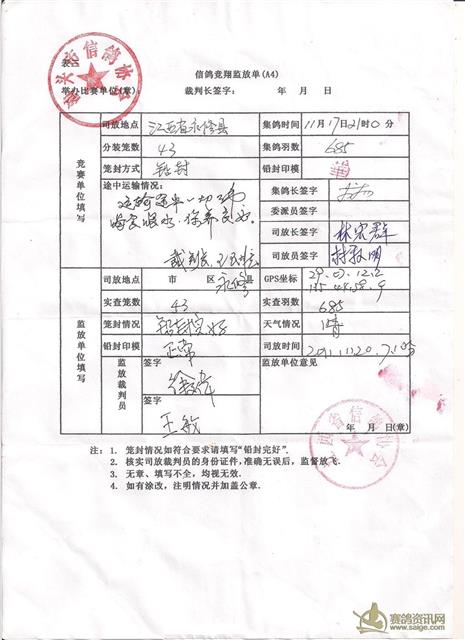 表二
信鸽竞翔监放单(A4)
举办比赛单位(章) 裁判长签字: 年 月 日
竞赛单位填写
司放地点 江西省永修县 集鸽时间 11月17日21时0分
分装笼数 43 集鸽羽数 685
笼封方式 铅封 铅封印模
途中运输情况: 集鸽长签字
运输途中一切正
委派员签字
司放长签字 林宏群
裁判长 司放员签字
监放单位填写
司放地点 市 区 永修县 GPS坐标 29.03.12.2
115.48.58.9
实查笼数 43 实查羽数 685
笼封情况 铅封完好 天气情况 晴
铅封印模 正常 司放时间 2011.11.20.7
监放裁判员 签字 监放单位意见
签字
王敏
年 月 日(章)
注: 1. 笼封情况如符合要求请填写“铅封完好”。
2. 核实司放裁判员的身份证件,准确无误后,监督放飞。
3. 无章、填写不全,均视无效。
4. 如有涂改,注明情况并加盖公章。
赛鸽资讯网
www.saige.com